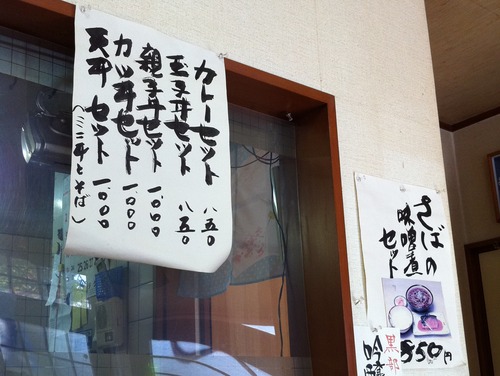 カレーセット 八五〇
玉子丼セット 八五〇
親子丼セット 一、〇〇〇
カツ丼セット 一、〇〇〇
天丼セット 一、〇〇〇
(ミニ丼とそば)
さばの
味噌煮
セット
850円
黒部
吟醸